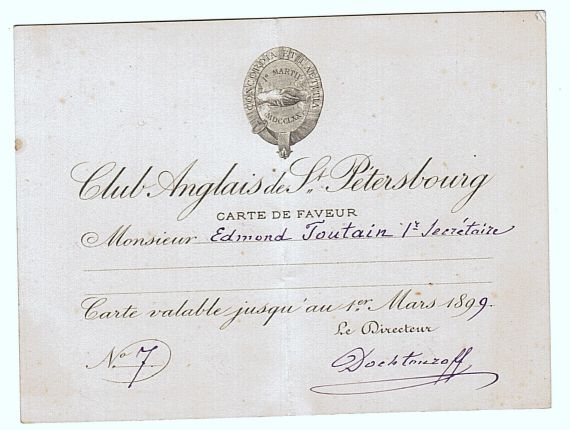 CONCORDIA ET LAETITIA
1º MARTII
MDCCLXX
Club Anglais de St. Pétersbourg
CARTE DE FAVEUR
Monsieur Edmond Toutain 1r Secrétaire
Carte valable jusqu'au 1er Mars 1899.
Le Directeur
No 7
Dochtouroff